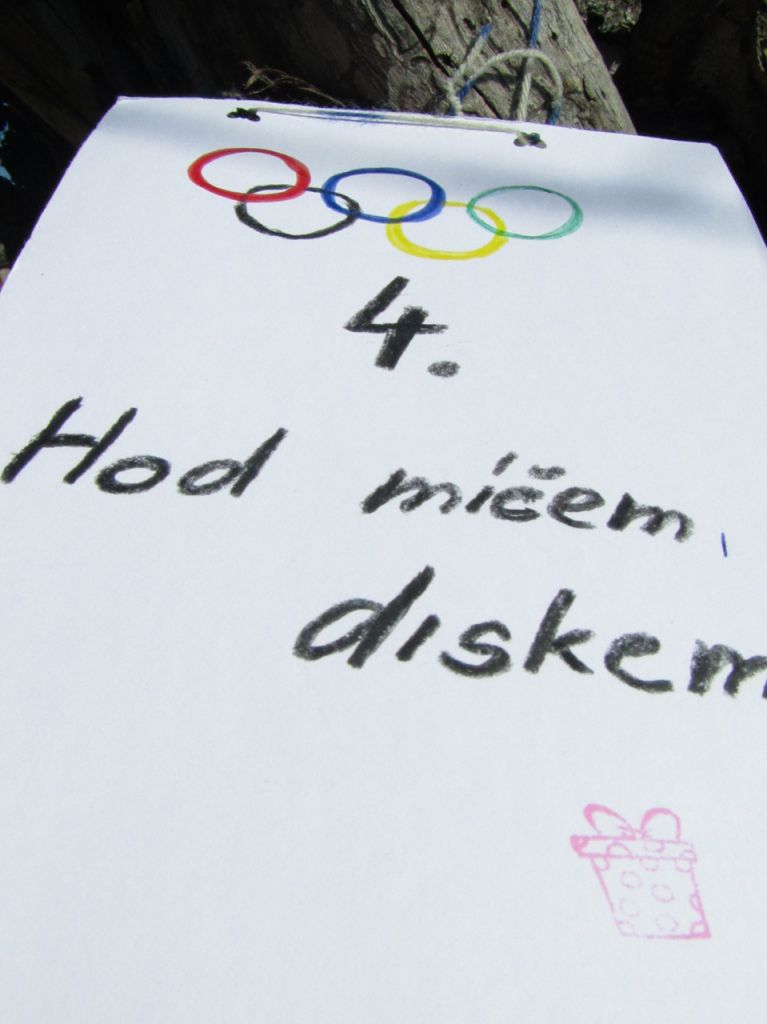 4.
Hod míčem,
diskem